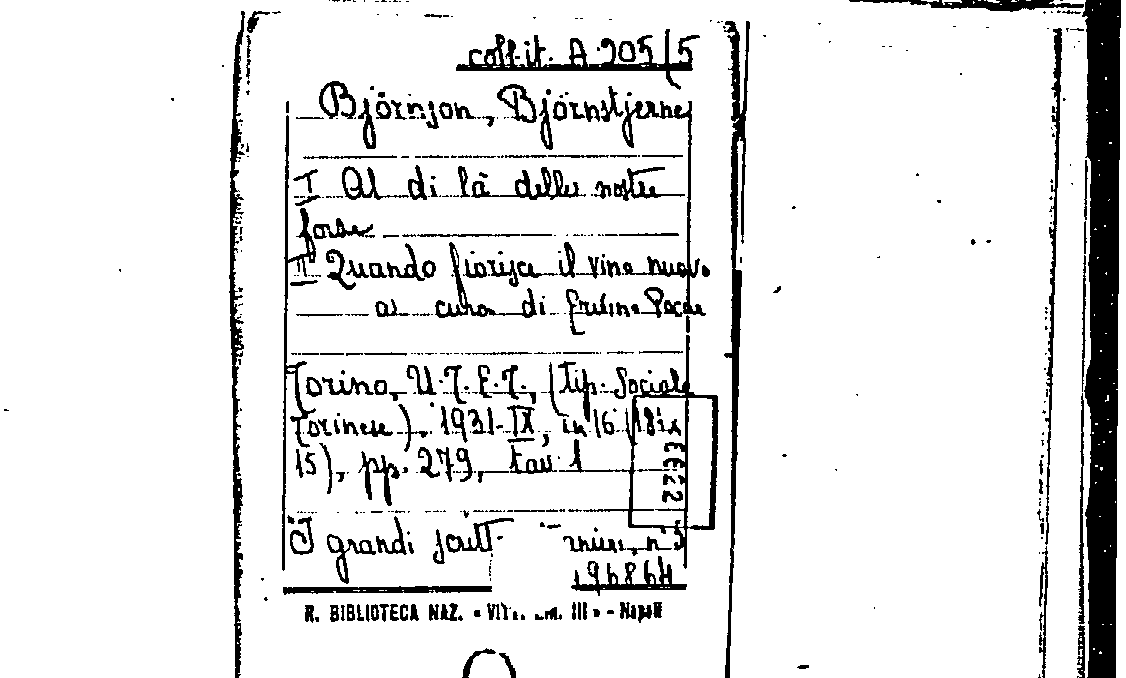 coll. it. A 205/5
Björnson, Björnstjerne
I Al di là delle nostre
forze
II Quando fiorisce il vino nuovo
a cura di
Torino, U.T.E.T., (tip. Sociale
Torinese), 1931-IX, in 16 (18x
15), pp. 279, tav 1
I grandi scritt n° 5
196864
R. BIBLIOTECA NAZ. III » - Napoli